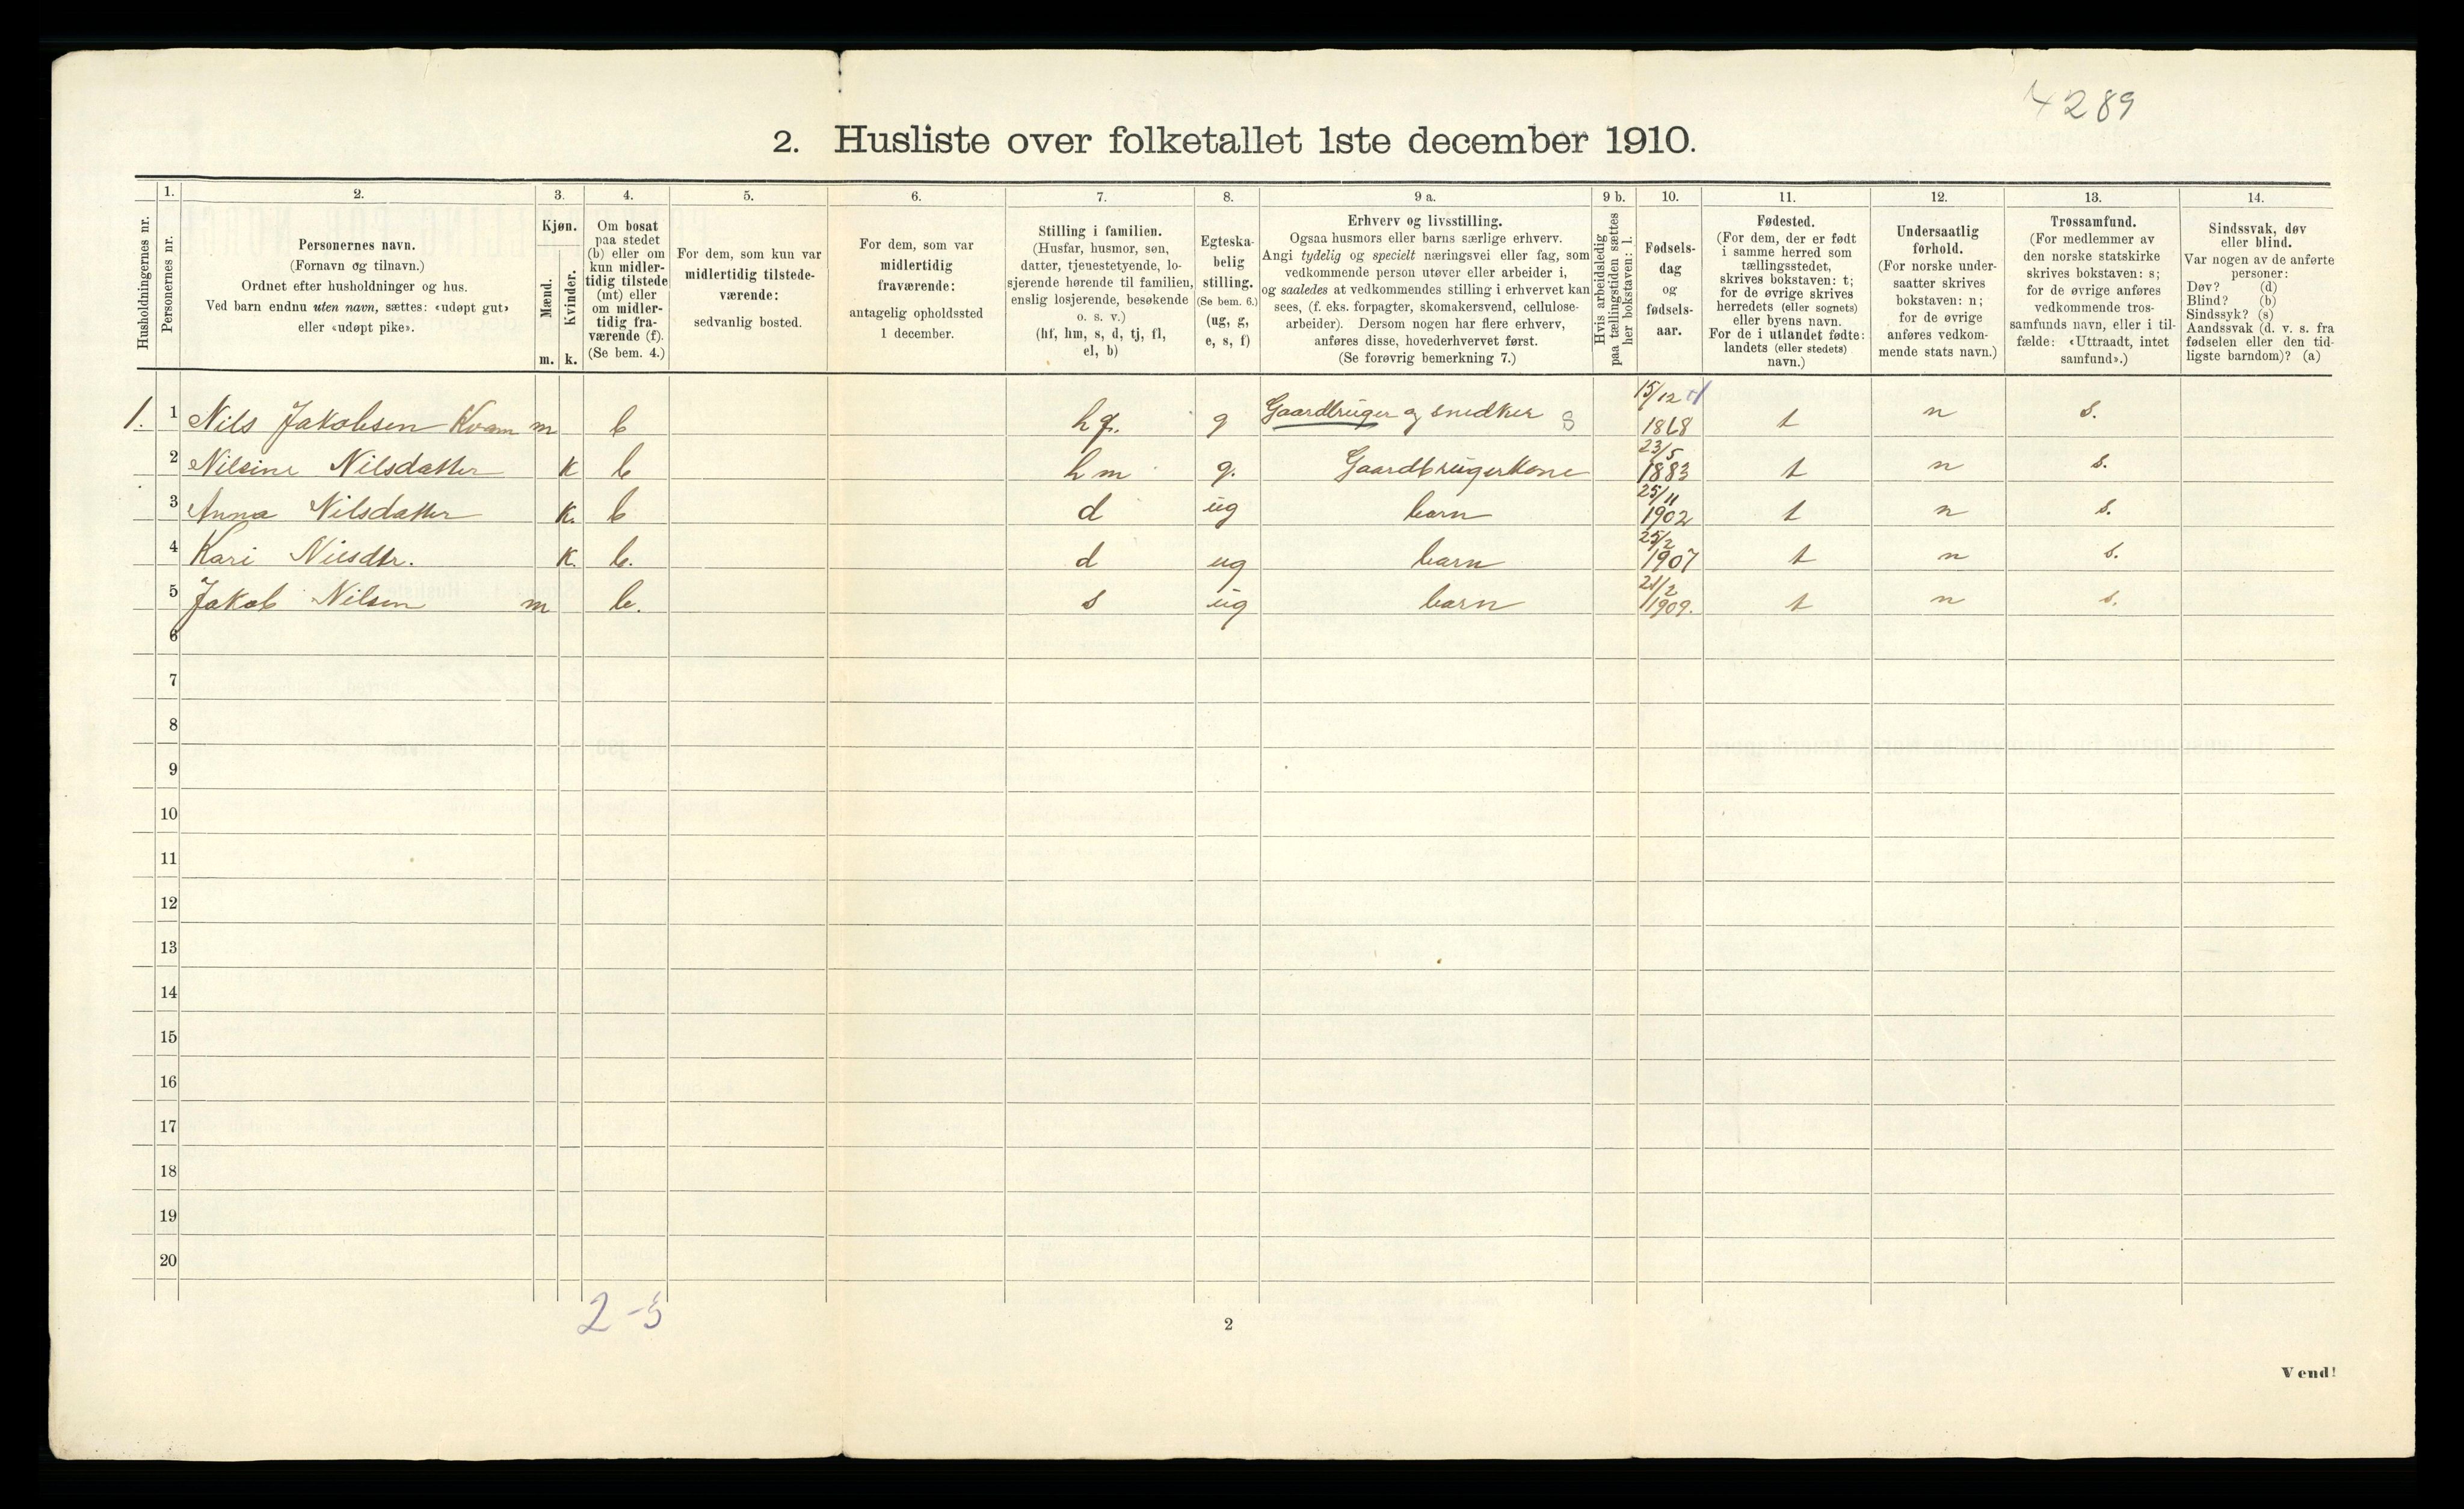 4289
2. Husliste over folketallet 1ste december 1910.
1. 2. 3. 4. 5. 6. 7. 8. 9 a. 9 b. 10. 11. 12. 13. 14.
Husholdningernes nr.
Personernes nr.
Personernes navn.
(Fornavn og tilnavn.)
Ordnet efter husholdninger og hus.
Ved barn endnu uten navn, sættes: «udøpt gut»
eller «udøpt pike».
Kjøn.
Mænd.
Kvinder.
m. k.
Om bosat
paa stedet
(b) eller om
kun midler-
tidig tilstede
(mt) eller
om midler-
tidig fra-
værende (f).
(Se bem. 4.)
For dem, som kun var
midlertidig tilstede-
værende:
sedvanlig bosted.
For dem, som var
midlertidig
fraværende:
antagelig opholdssted
1 december.
Stilling i familien.
(Husfar, husmor, søn,
datter, tjenestetyende, lo-
sjerende hørende til familien,
enslig losjerende, besøkende
o. s. v.)
(hf, hm, s, d, tj, fl,
el, b)
Egteska-
belig
stilling.
(Se bem. 6.)
(ug, g,
e, s, f)
Erhverv og livsstilling.
Ogsaa husmors eller barns særlige erhverv.
Angi tydelig og specielt næringsvei eller fag, som
vedkommende person utøver eller arbeider i,
og saaledes at vedkommendes stilling i erhvervet kan
sees, (f. eks. forpagter, skomakersvend, cellulose-
arbeider). Dersom nogen har flere erhverv,
anføres disse, hovederhvervet først.
(Se forøvrig bemerkning 7.)
Hvis arbeidsledig
paa tællingstiden sættes
her bokstaven: l.
Fødsels-
dag
og
fødsels-
aar.
Fødested.
(For dem, der er født
i samme herred som
tællingsstedet,
skrives bokstaven: t;
for de øvrige skrives
herredets (eller sognets)
eller byens navn.
For de i utlandet fødte:
landets (eller stedets)
navn.)
Undersaatlig
forhold.
(For norske under-
saatter skrives
bokstaven: n;
for de øvrige
anføres vedkom-
mende stats navn.)
Trossamfund.
(For medlemmer av
den norske statskirke
skrives bokstaven: s;
for de øvrige anføres
vedkommende tros-
samfunds navn, eller i til-
fælde: «Uttraadt, intet
samfund».)
Sindssvak, døv
eller blind.
Var nogen av de anførte
personer:
Døv? (d)
Blind? (b)
Sindssyk? (s)
Aandssvak (d. v. s. fra
fødselen eller den tid-
ligste barndom)? (a)
1. 1 Nils Jakobsen Kvam m b hf. g Gaardbruger og snedker S 15/12 1868 t n s.
2 Nilsine Nilsdatter k b hm g. Gaardbrugerkone 23/5 1883 t n s.
3 Anna Nilsdatter k. b d ug barn 25/11 1902 t n s.
4 Kari Nilsdtr. k. b. d ug barn 25/2 1907 t n s.
5 Jakob Nilsen m b. s ug barn 21/2 1909. t n s.
6
7
8
9
10
11
12
13
14
15
16
17
18
19
20
2-3
2
Vend!